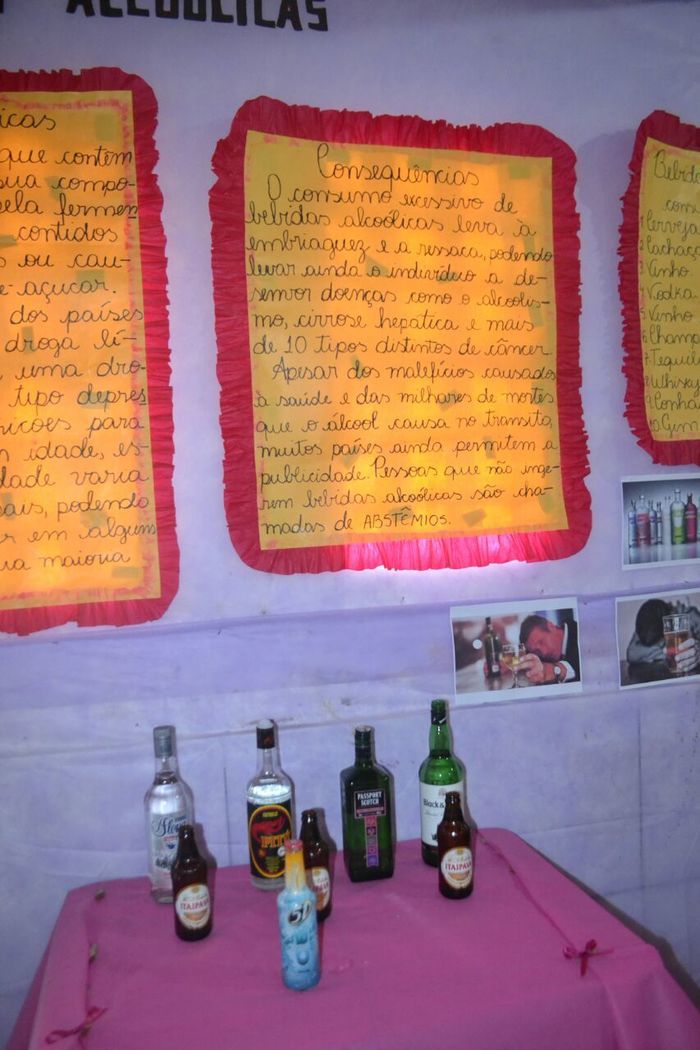 ALCOÓLICAS
icas
que contém
sua compo-
pela fermen
contidos
s ou cau-
e-açucar.
dos países
droga lí-
uma dro-
tipo depres
nicoes para
idade, es-
dade varia
ais, podendo
r em algum
ua maioria
Consequências
O consumo excessivo de
bebidas alcoólicas leva à
embriaguez e a ressaca, podendo
levar ainda o indivíduo a de-
senvor doenças como o alcoolis-
mo, cirrose hepática e mais
de 10 tipos distintos de câncer.
Apesar dos malefícios causados
à saúde e das milhares de mortes
que o álcool causa no transito,
muitos países ainda permitem a
publicidade. Pessoas que não inge-
rem bebidas alcoólicas são cha-
madas de ABSTÊMIOS.
Bebida
cons
1 Cerveja
2 Cachaça
3 Vinho
4 Vodka
5 Vinho
6 Champ
7 Tequil
8 Whisky
9 Conha
10 Gim
PASSPORT
SCOTCH
Black &
ITAIPAVA
ITAIPAVA
ITAIPAVA
51
ICE